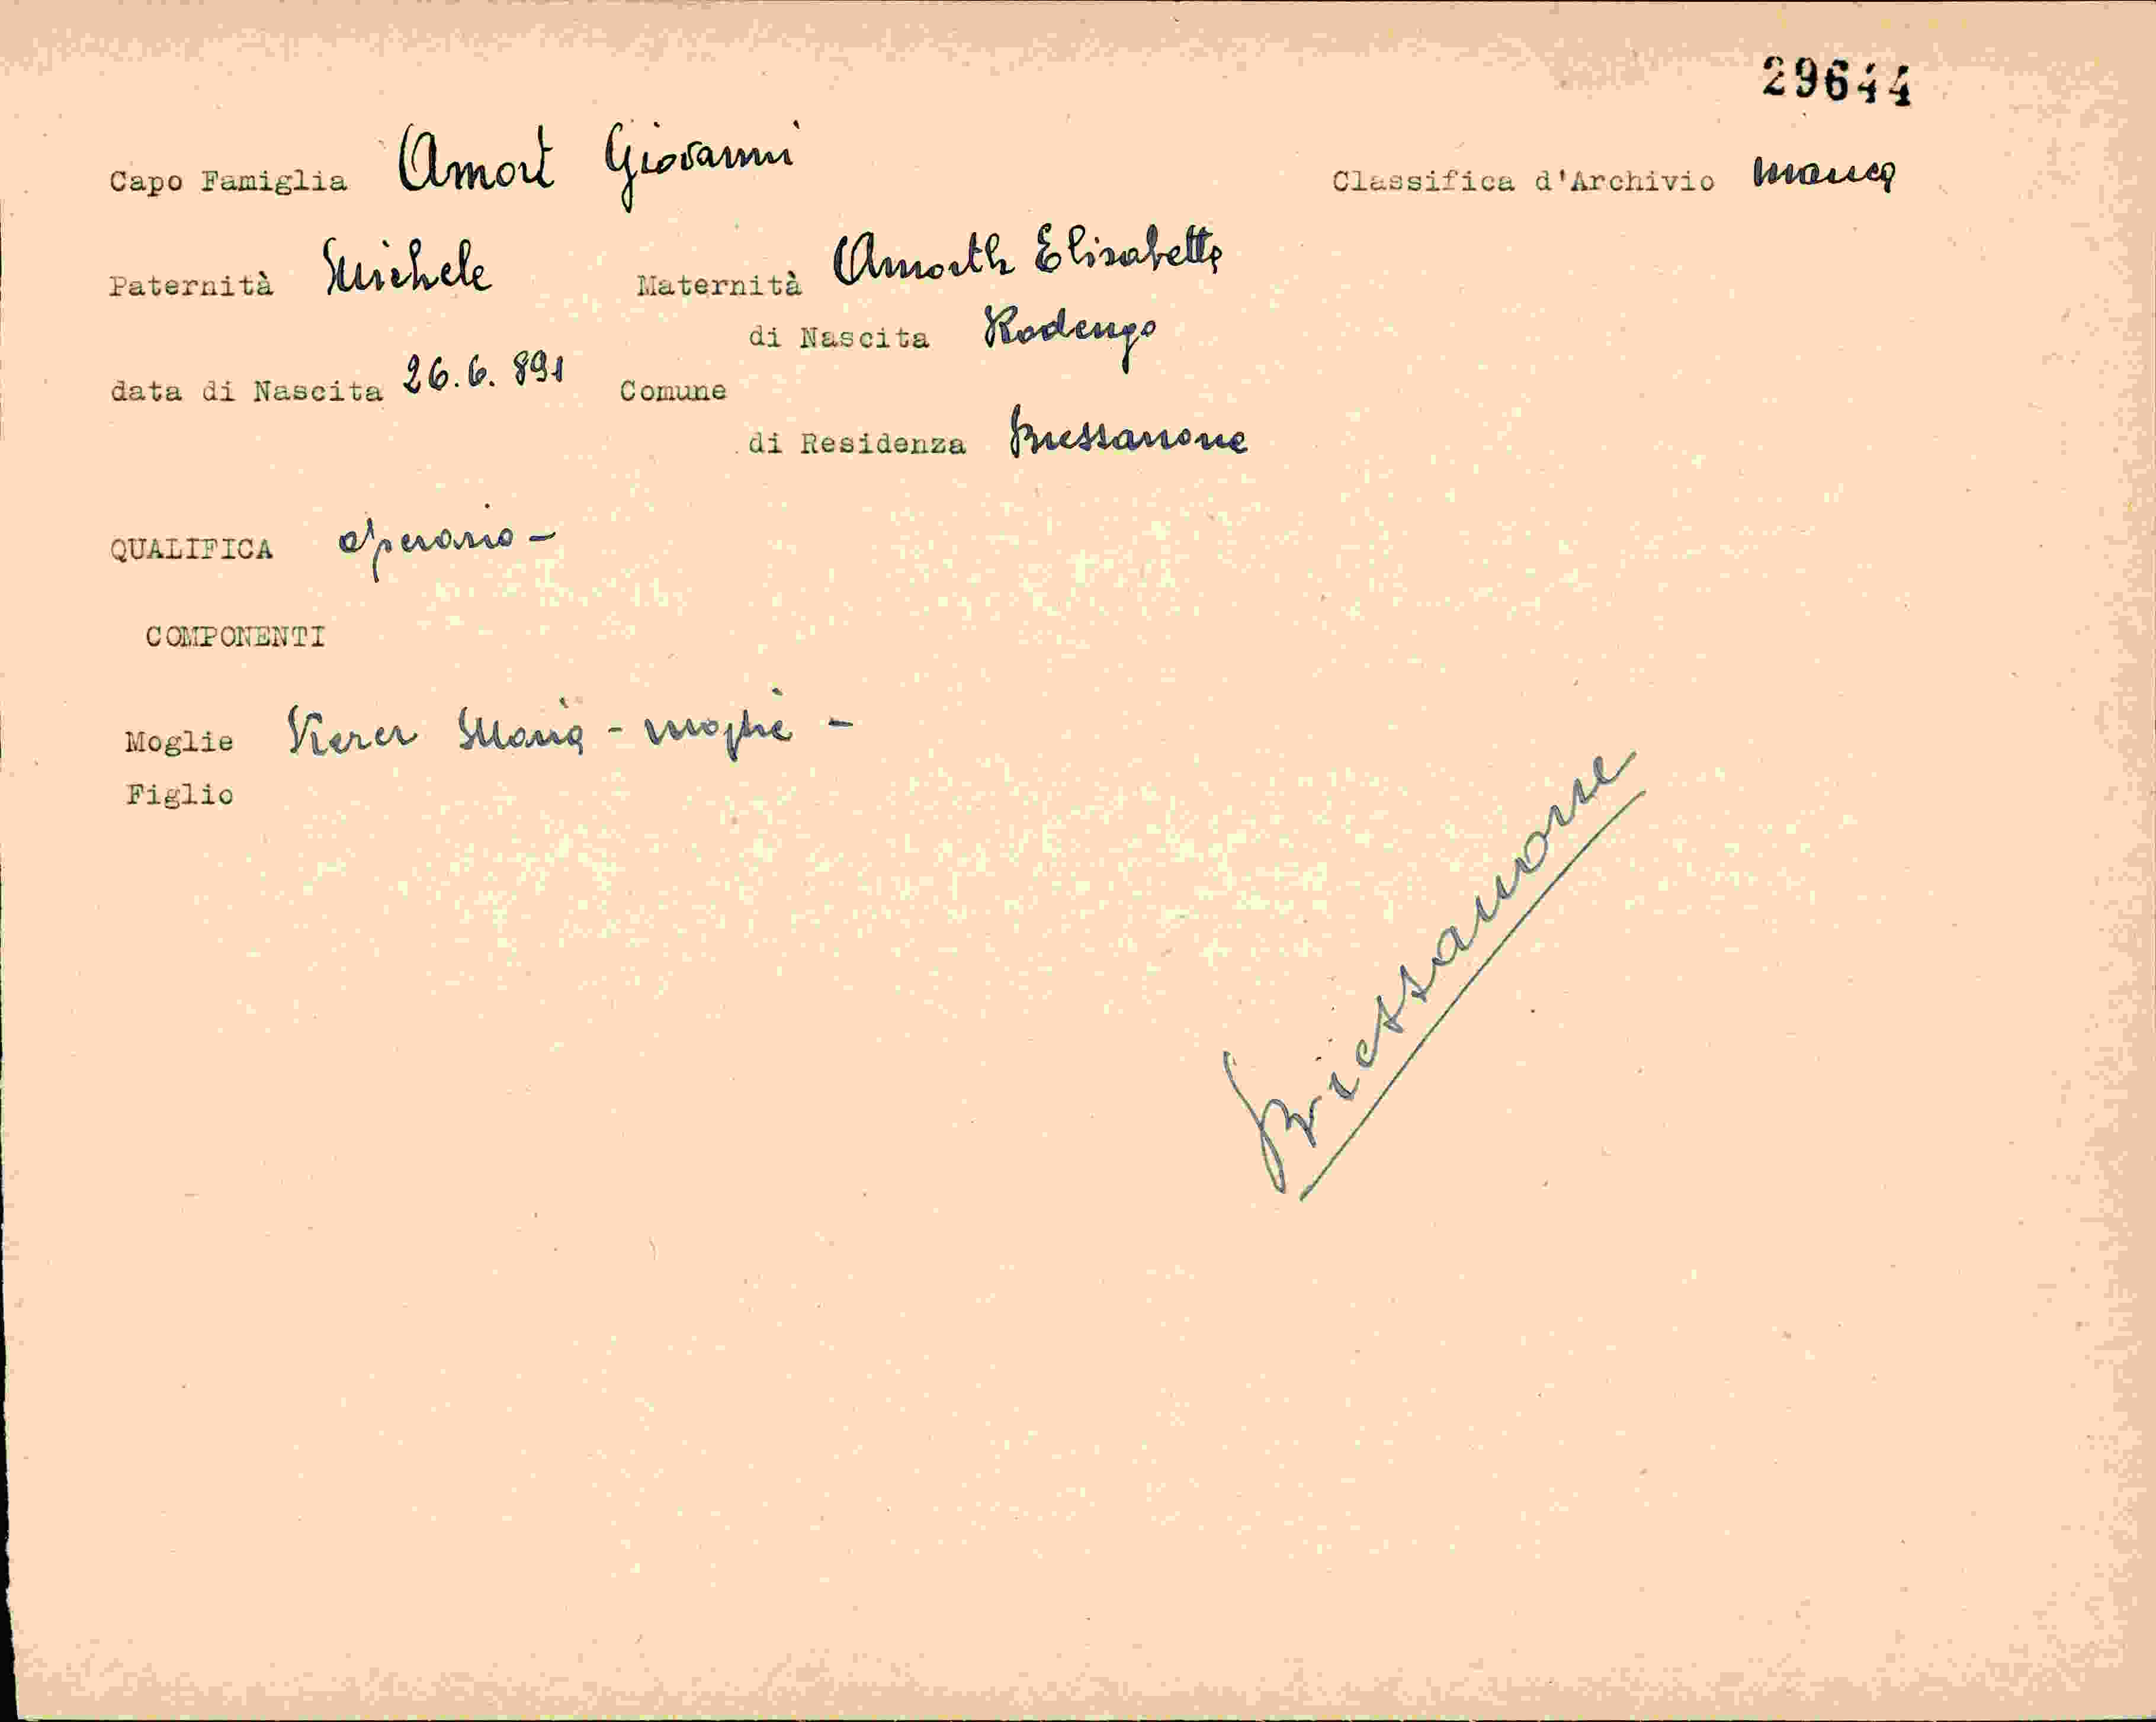 29644
Capo Famiglia Amort Giovanni Classifica d'Archivio manca
Paternità Michele Maternità Amorth Elisabetta
di Nascita Rodengo
data di Nascita 26.6.891 Comune
di Residenza Bressanone
QUALIFICA operaio -
COMPONENTI
Moglie Kerer Maria - moglie -
Figlio
Bressanone